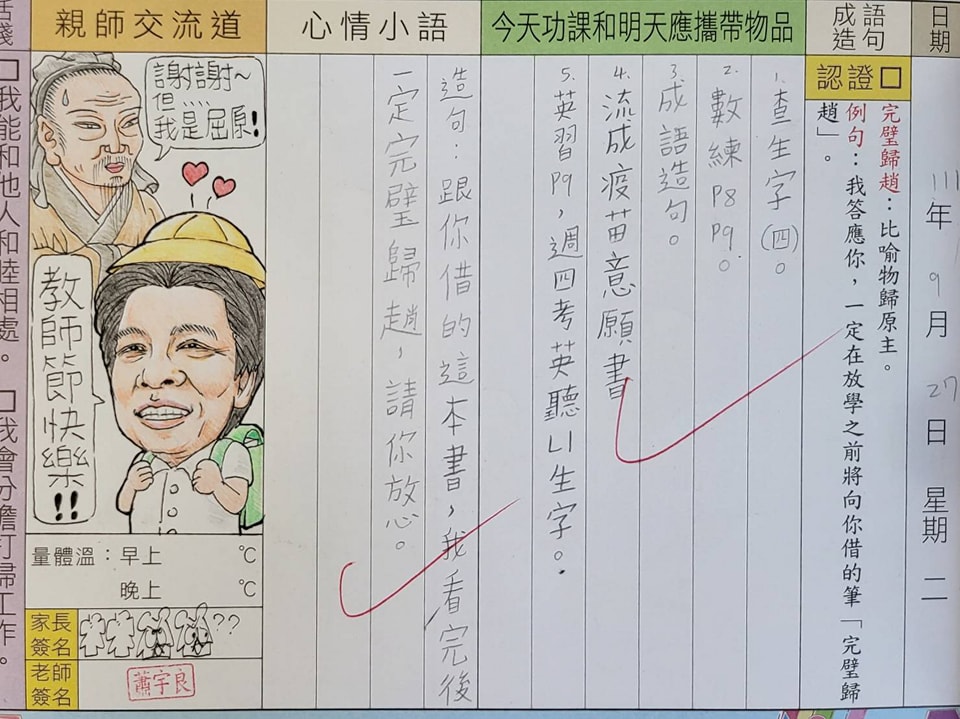 日期
111年9月27日 星期二
成語造句
認證□
完璧歸趙：比喻物歸原主。
例句：我答應你，一定在放學之前將向你借的筆「完璧歸
趙」。
今天功課和明天應攜帶物品
1.查生字(四)。
2.數練P8 P9。
3.成語造句。
4.流感疫苗意願書
5.英習P9，週四考英聽L1生字。
心情小語
造句：跟你借的這本書，我看完後
一定完璧歸趙，請你放心。
親師交流道
謝謝~
但……
我是屈原!
教師節快樂!!
量體溫：早上 ℃
晚上 ℃
家長簽名
??
老師簽名
蕭宇良
□我能和他人和睦相處。 □我會分擔打掃工作。